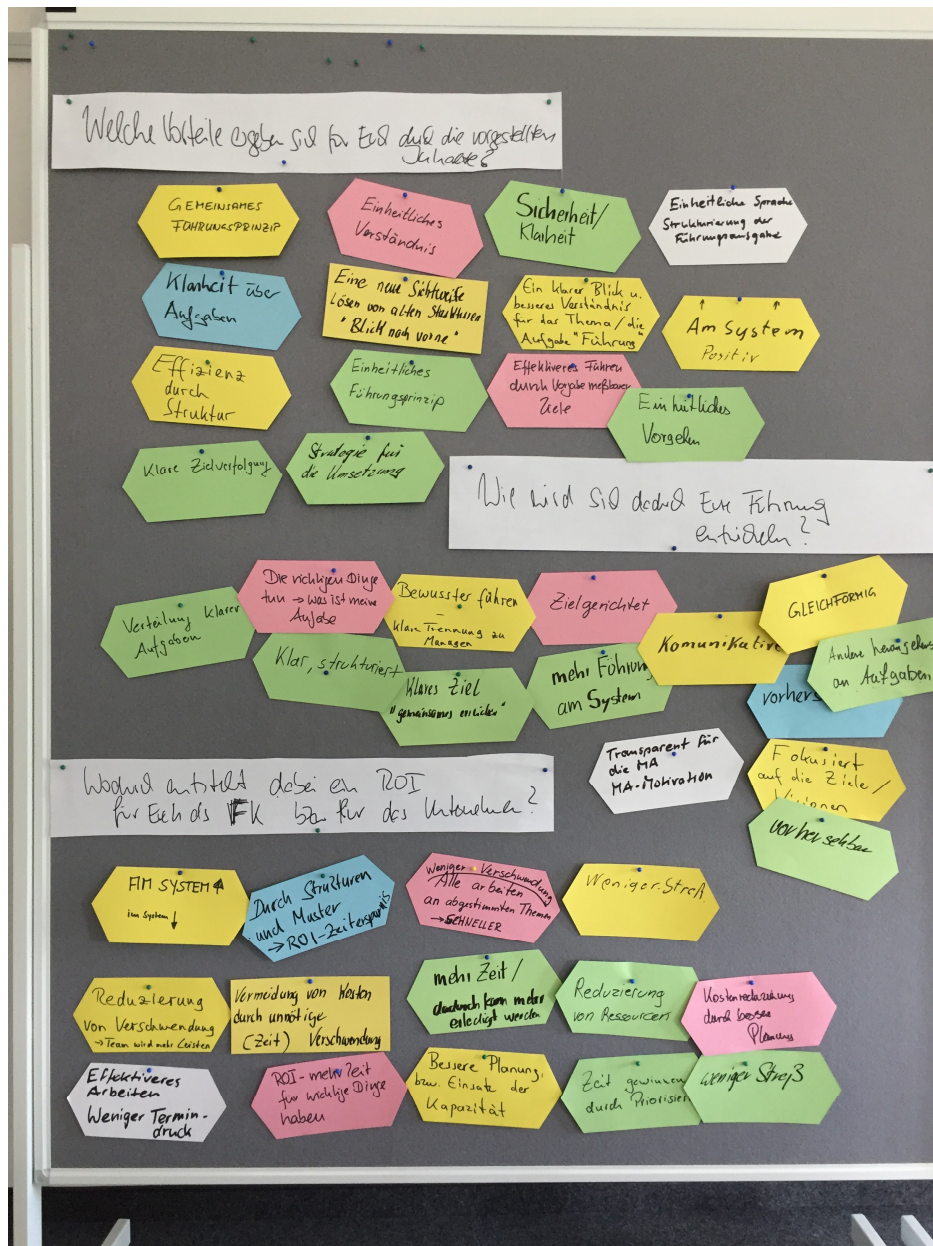 Welche Vorteile ergeben sich für Euch durch die vorgestellten
Inhalte?
GEMEINSAMES
FÜHRUNGSPRINZIP
Einheitliches
Verständnis
Sicherheit/
Klarheit
Einheitliche Sprache
Strukturierung der
Führungsaufgabe
Klarheit über
Aufgaben
Eine neue Sichtweise
Lösen von alten Strukturen
"Blick nach vorne"
Ein klarer Blick u.
besseres Verständnis
für das Thema / die
Aufgabe "Führung"
↑ ↑
Am System
Positiv
Effizienz
durch
Struktur
Einheitliches
Führungsprinzip
Effektiveres Führen
durch Vorgabe meßbarer
Ziele
Einheitliches
Vorgehn
Klare Zielverfolgung
Strategie für
die Umsetzung
Wie wird sich dadurch Eure Führung
entwickeln?
Verteilung klarer
Aufgaben
Die richtigen Dinge
tun → was ist meine
Aufgabe
Bewusster führen
–
klare Trennung zu
Managen
Zielgerichtet
Komunikative
GLEICHFÖRMIG
Andere
an Aufgaben
Klar, strukturiert
Klares Ziel
"gemeinsames erreichen"
mehr Führung
am System
vorhers
Transparent für
die MA
MA-Motivation
Fokusiert
auf die Ziele /
Visionen
vorhersehbar
Wodurch entsteht dabei ein ROI
für Euch als FK bzw für das Unternehmen?
AM SYSTEM ↑
im System ↓
Durch Strukturen
und Muster
→ ROI-Zeitersparnis
weniger Verschwendung
Alle arbeiten
an abgestimmten Themen
→ SCHNELLER
Weniger Streß
Reduzierung
von Verschwendung
→ Team wird mehr Leisten
Vermeidung von Kosten
durch unnötige
(Zeit) Verschwendung
mehr Zeit /
dadurch kann mehr
erledigt werden
Reduzierung
von Ressourcen
Kostenreduzierung
durch bessere
Planung
Effektiveres
Arbeiten
Weniger Termin-
druck
ROI - mehr Zeit
für wichtige Dinge
haben
Bessere Planung,
bzw. Einsatz der
Kapazität
Zeit gewinnen
durch Priorisier
weniger Streß